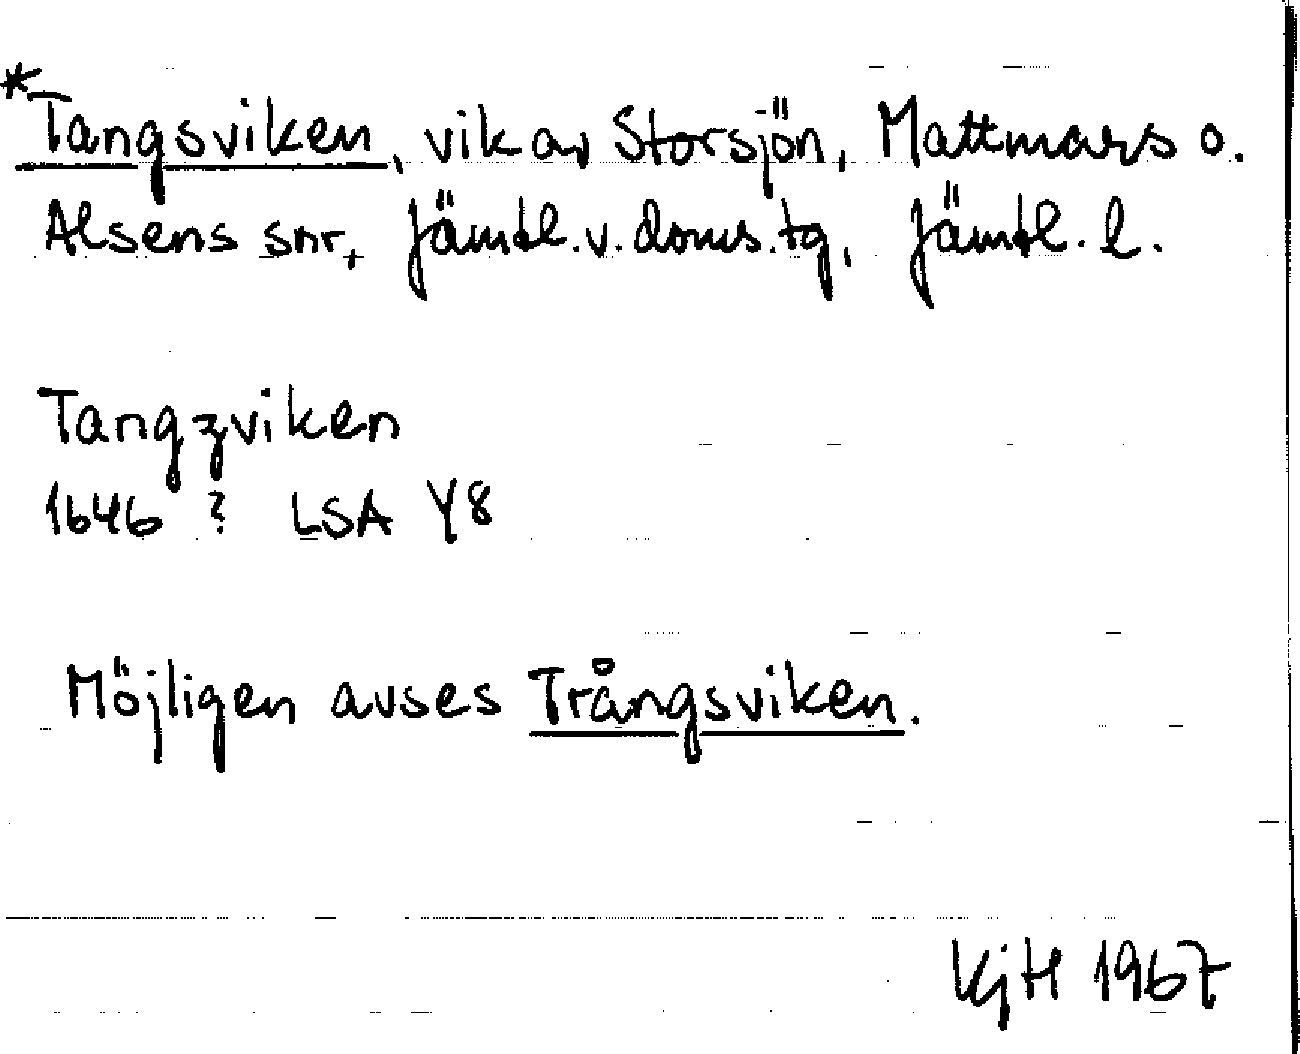 *Tangsviken, vik av Storsjön, Mattmars o.
Alsens snr, Jämtl. v. doms. tg, Jämtl. l.
Tangzviken
1646 ? LSA Y8
Möjligen avses Trångsviken.
KjH 1967